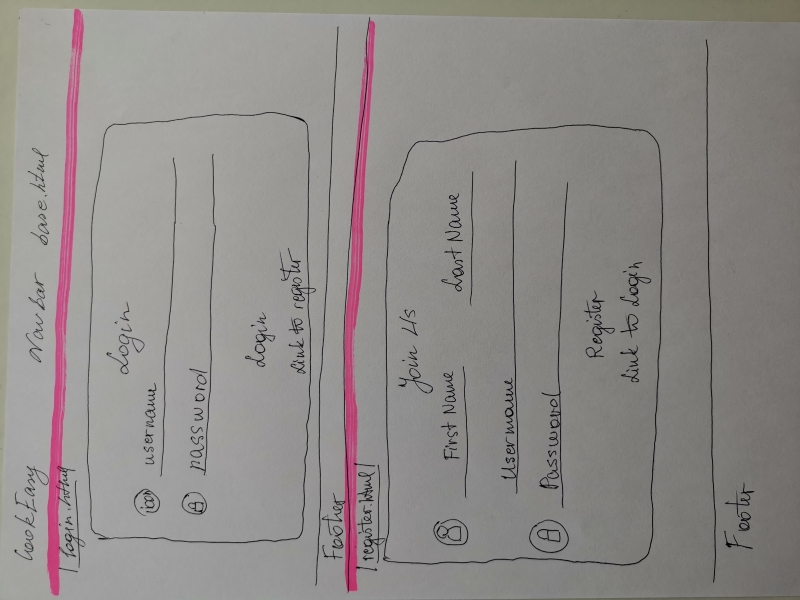 CookEasy Navbar base.html
login.html
Login
icon username
password
Login
Link to register
Footer
register.html
Join Us
First Name Last Name
Username
Password
Register
Link to Login
Footer